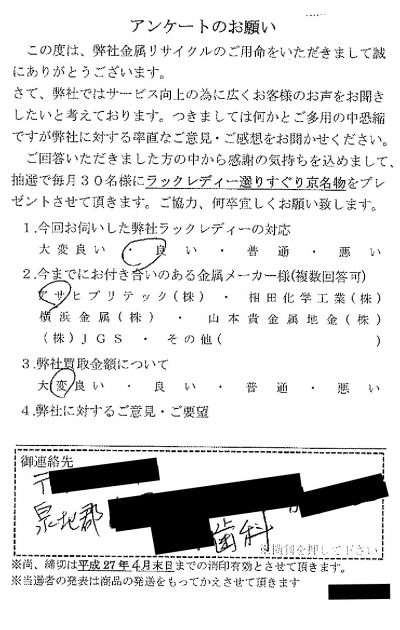 アンケートのお願い
この度は、弊社金属リサイクルのご用命をいただきまして誠
にありがとうございます。
さて、弊社ではサービス向上の為に広くお客様のお声をお聞き
したいと考えております。つきましては何かとご多用の中恐縮
ですが弊社に対する率直なご意見・ご感想をお聞かせください。
ご回答いただきました方の中から感謝の気持ちを込めまして、
抽選で毎月30名様にラックレディー選りすぐり京名物をプレ
ゼントさせて頂きます。ご協力、何卒宜しくお願い致します。
1.今回お伺いした弊社ラックレディーの対応
大変良い ・ 良い ・ 普通 ・ 悪い
2.今までにお付き合いのある金属メーカー様(複数回答可)
アサヒプリテック(株) ・ 相田化学工業(株)
横浜金属(株) ・ 山本貴金属地金(株)
(株)JGS ・ その他( )
3.弊社買取金額について
大変良い ・ 良い ・ 普通 ・ 悪い
4.弊社に対するご意見・ご要望
御連絡先
〒
郡
歯科
※横判を押して下さい
※尚、締切は平成27年4月末日までの消印有効とさせて頂きます。
※当選者の発表は商品の発送をもってかえさせて頂きます